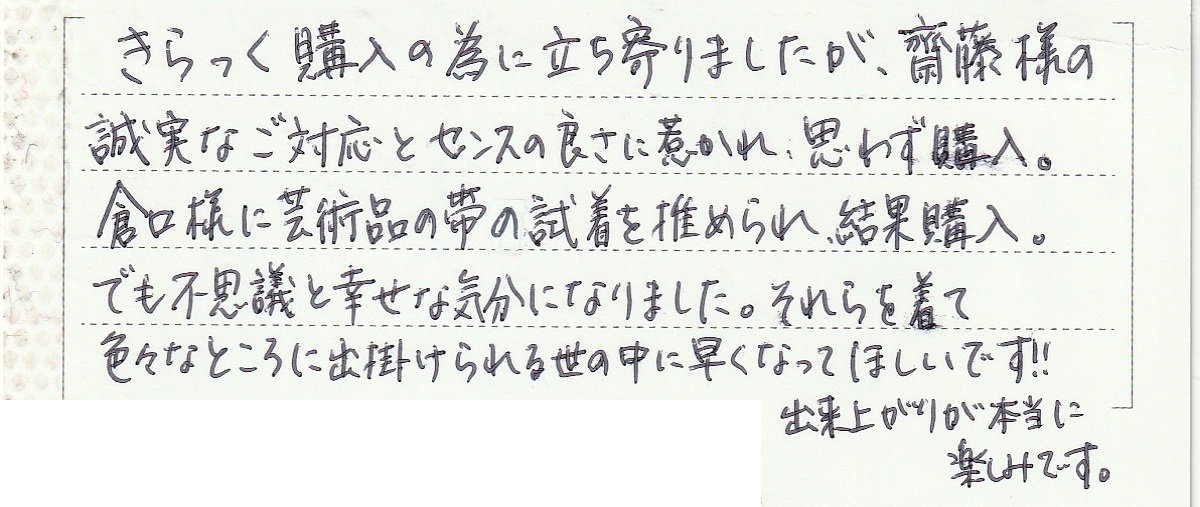 きらっく購入の為に立ち寄りましたが、齋藤様の
誠実なご対応とセンスの良さに惹かれ、思わず購入。
倉口様に芸術品の帯の試着を推められ、結果購入。
でも不思議と幸せな気分になりました。それらを着て
色々なところに出掛けられる世の中に早くなってほしいです!!
出来上がりが本当に
楽しみです。